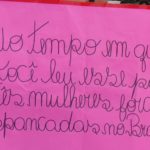 No tempo em qu
você leu esse po
ês mulheres fora
spancadas no Bra